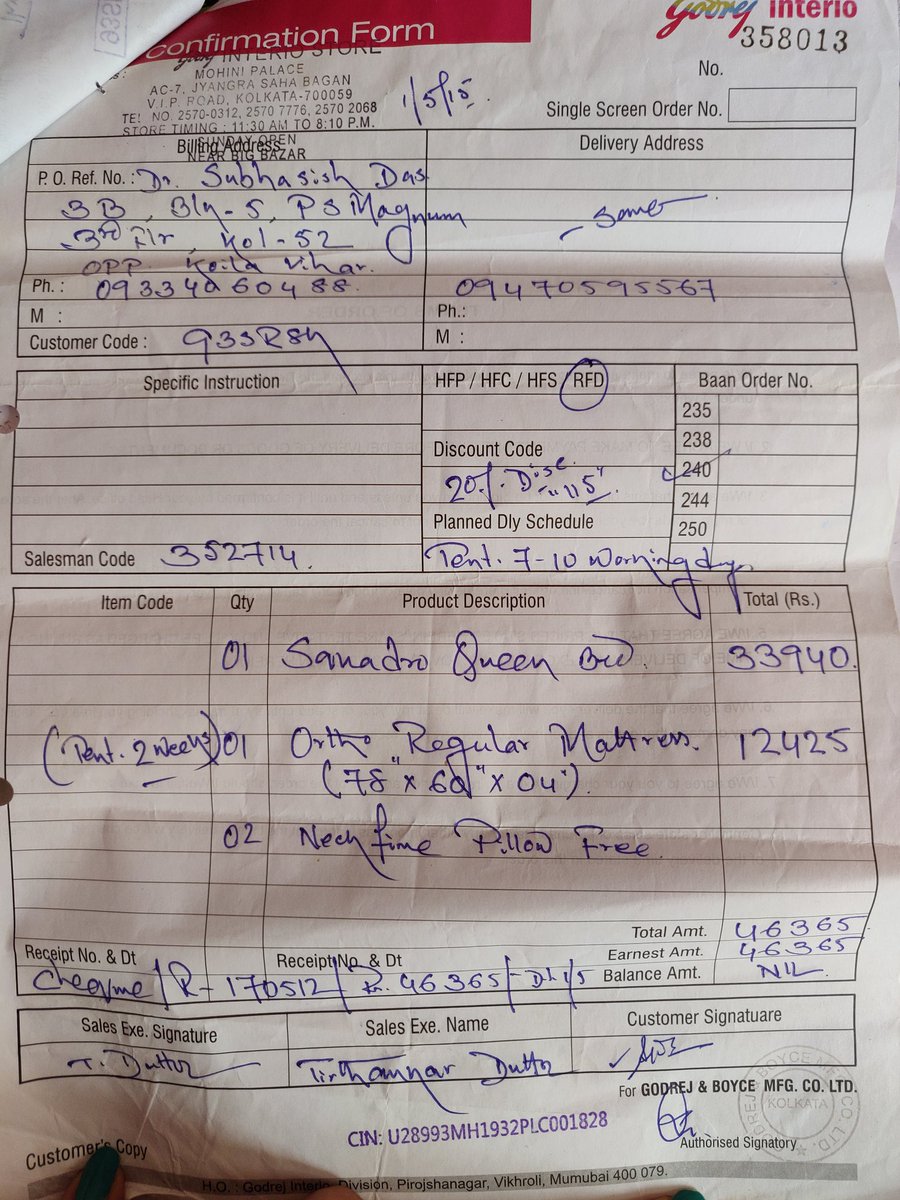 Confirmation Form
Godrej Interio
358013
INTERIO STORE
MOHINI PALACE
AC-7, JYANGRA SAHA BAGAN
V.I.P. ROAD, KOLKATA-700059
TEL NO. 2570-0312, 2570 7776, 2570 2068
STORE TIMING : 11:30 AM TO 8:10 P.M.
SUNDAY OPEN
NEAR BIG BAZAR
1/5/15
No.
Single Screen Order No.
Billing Address
Delivery Address
P. O. Ref. No. : Dr. Subhasish Das
3B, Bln-5, PS Magnum
3rd Flr, Kol-52
OPP. Koila Vihar.
Same
Ph. : 09334060488.
09470595567
M :
Ph.:
Customer Code : 933RSH
M :
Specific Instruction
HFP / HFC / HFS / RFD
Baan Order No.
235
238
240
244
250
Discount Code
20%. Disc.
"115"
Planned Dly Schedule
Tent. 7-10 Working days
Salesman Code 352714.
Item Code Qty Product Description Total (Rs.)
01 Sanadro Queen Bed. 33940.
(Tent. 2 weeks) 01 Ortho Regular Mattress. 12425
(78" x 60" x 04").
02 Neck fime Pillow Free.
Total Amt. 46365
Earnest Amt. 46365
Balance Amt. NIL
Receipt No. & Dt
Receipt No. & Dt
R-170512/ 46365/- Dt. 1/5
Sales Exe. Signature
Sales Exe. Name
Customer Signatuare
T. Dutta
Tirthankar Dutta
For GODREJ & BOYCE MFG. CO. LTD.
GODREJ & BOYCE MFG. CO. LTD.
KOLKATA
CIN: U28993MH1932PLC001828
Authorised Signatory
Customer's Copy
H.O. : Godrej Interio Division, Pirojshanagar, Vikhroli, Mumubai 400 079.